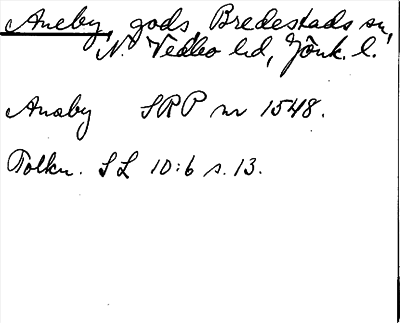 Aneby, gods, Bredestads sn,
N. Vedbo hd, Jönk. l.
Anaby SRP nr 1548.
Tolkn. SL 10:6 s. 13.